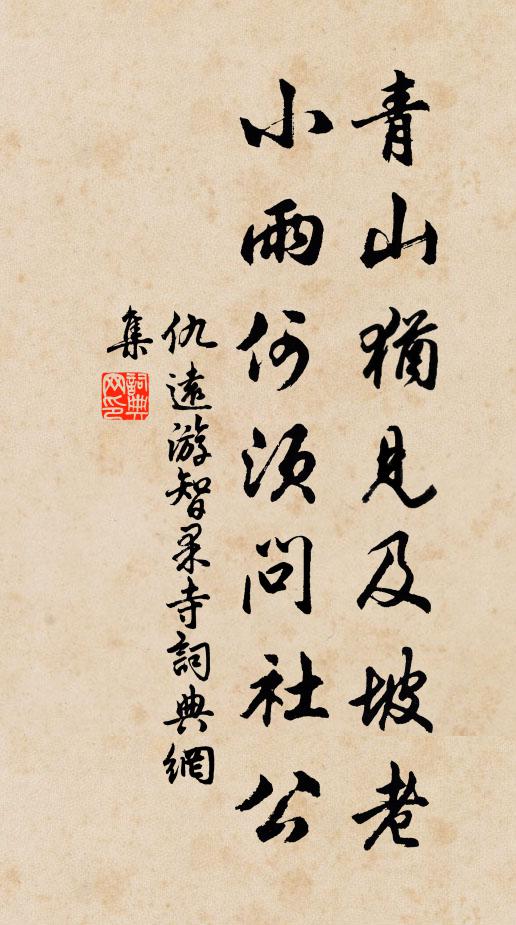 青山猶見及坡老
小雨何須問社公
仇遠游智果寺詞典網
集
詞典
网印